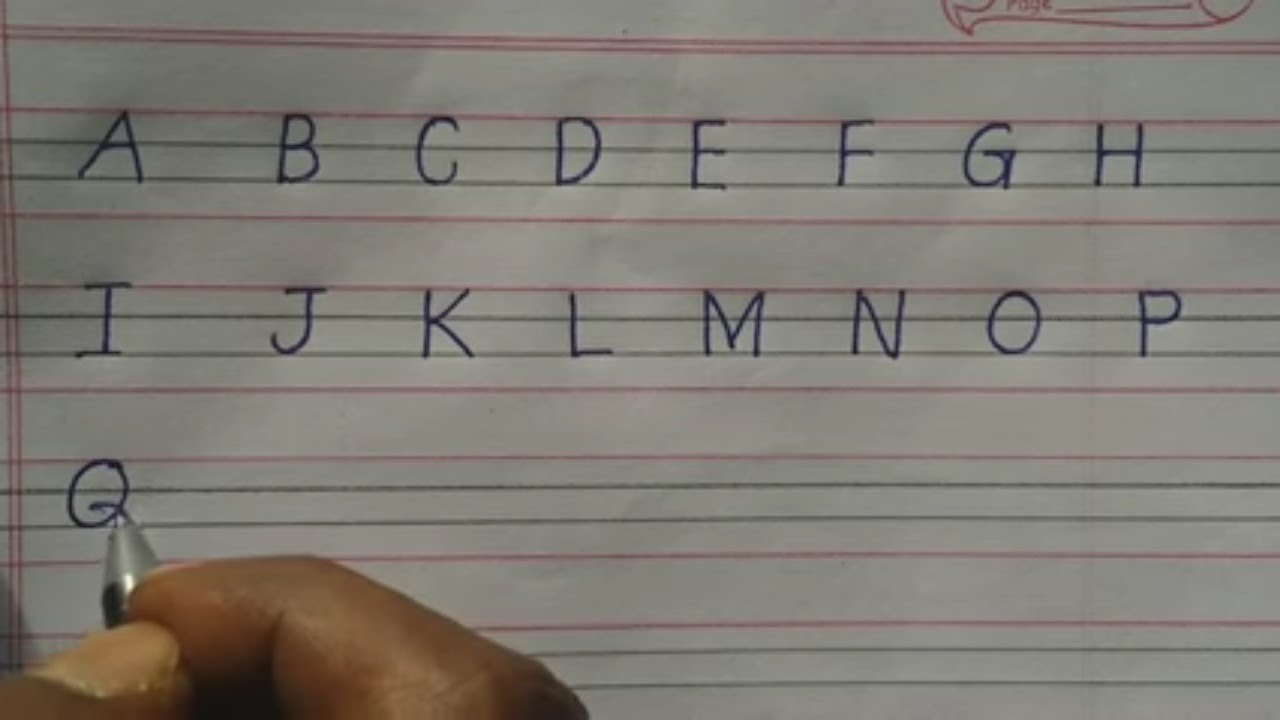 Page
A B C D E F G H
I J K L M N O P
Q